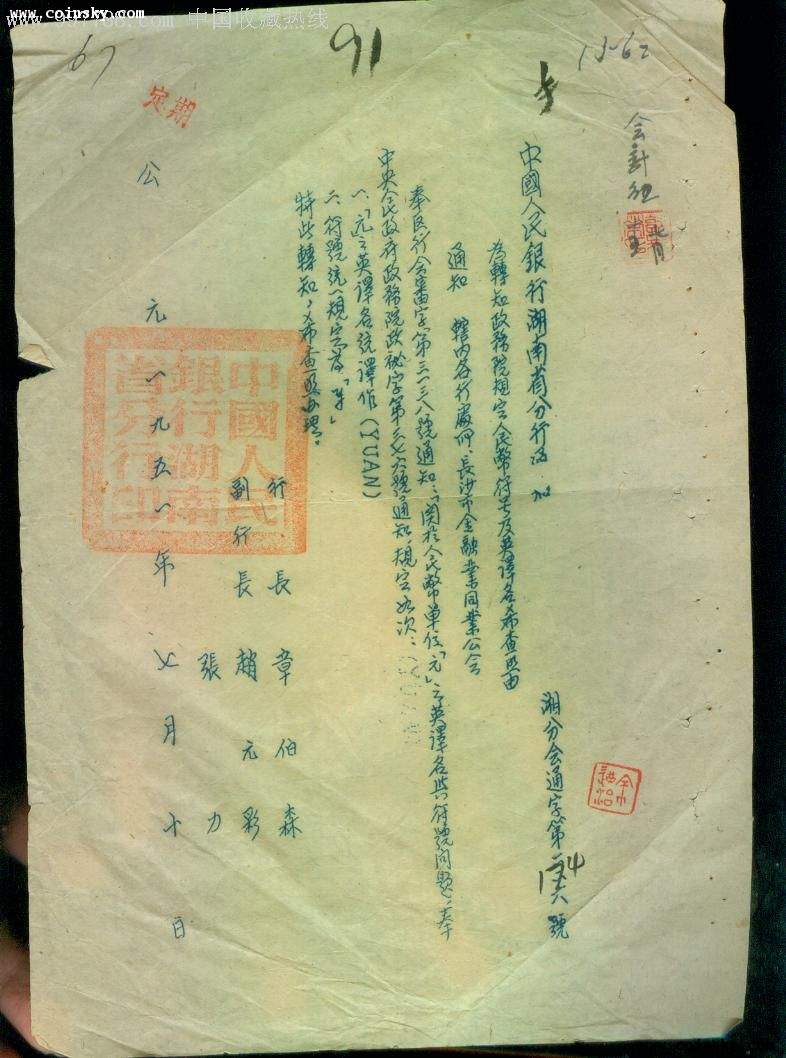 www.coinsky.com
中国收藏热线
67
91
15-62
定期
会計組
中國人民銀行湖南省分行函
湘分会通字第 號
為轉知政務院規定人民幣符号及英譯名希查照由
通知 轄内各行處四、長沙市金融業同業公会
奉區行会審字第三一三八號通知:「関於人民幣單位「元」之英譯名与符號问題,奉
中央人民政府政務院政秘字第三七六號通知規定如次:
一、「元」之英譯名統譯作(YUAN)
二、符號統一規定為「¥」
特此轉知,希查照办理。
行長 章伯森
副行長 趙元彩
張力
公元一九五一年七月十日
中國人民銀行湖南省分行印